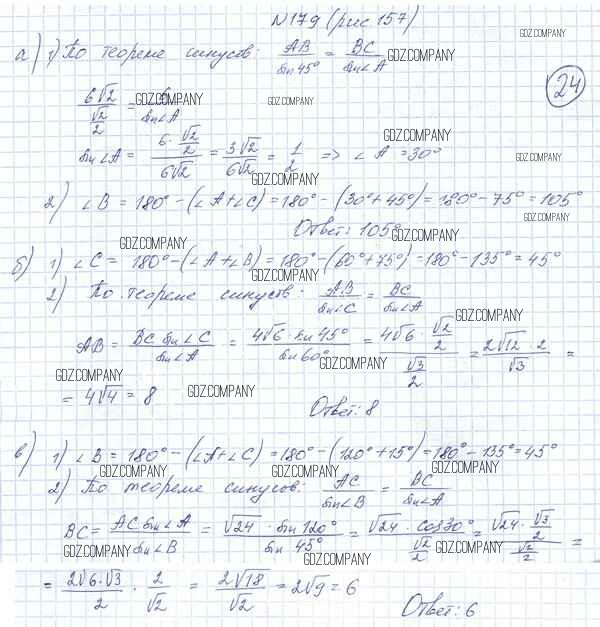 N179 (рис 157)
GDZ.COMPANY
а) 1) По теореме синусов: AB/sin45° = BC/sin∠A GDZ.COMPANY
24
6√2/(√2/2) = 6/sin∠A GDZ.COMPANY GDZ.COMPANY
GDZ.COMPANY
sin∠A = (6·√2/2)/(6√2) = 3√2/6√2 = 1/2 => ∠A = 30° GDZ.COMPANY
GDZ.COMPANY
2) ∠B = 180° - (∠A+∠C) = 180° - (30°+45°) = 180° - 75° = 105°
GDZ.COMPANY
Ответ: 105° GDZ.COMPANY
GDZ.COMPANY
б) 1) ∠C = 180° - (∠A+∠B) = 180° - (60°+75°) = 180° - 135° = 45°
GDZ.COMPANY
2) По теореме синусов: AB/sin∠C = BC/sin∠A
GDZ.COMPANY
AB = BC sin∠C/sin∠A = 4√6·sin45°/sin60° = (4√6·√2/2)/(√3/2) = 2√12·2/√3 =
GDZ.COMPANY
GDZ.COMPANY
= 4√4 = 8 GDZ.COMPANY
Ответ: 8
в) 1) ∠B = 180° - (∠A+∠C) = 180° - (120°+15°) = 180° - 135° = 45°
GDZ.COMPANY GDZ.COMPANY GDZ.COMPANY
2) По теореме синусов: AC/sin∠B = BC/sin∠A
BC = AC sin∠A/sin∠B = √24·sin120°/sin45° = √24·cos30°/(√2/2) = (√24·√3/2)/(√2/2) =
GDZ.COMPANY GDZ.COMPANY
GDZ.COMPANY
= 2√6·√3/2 · 2/√2 = 2√18/√2 = 2√9 = 6
Ответ: 6